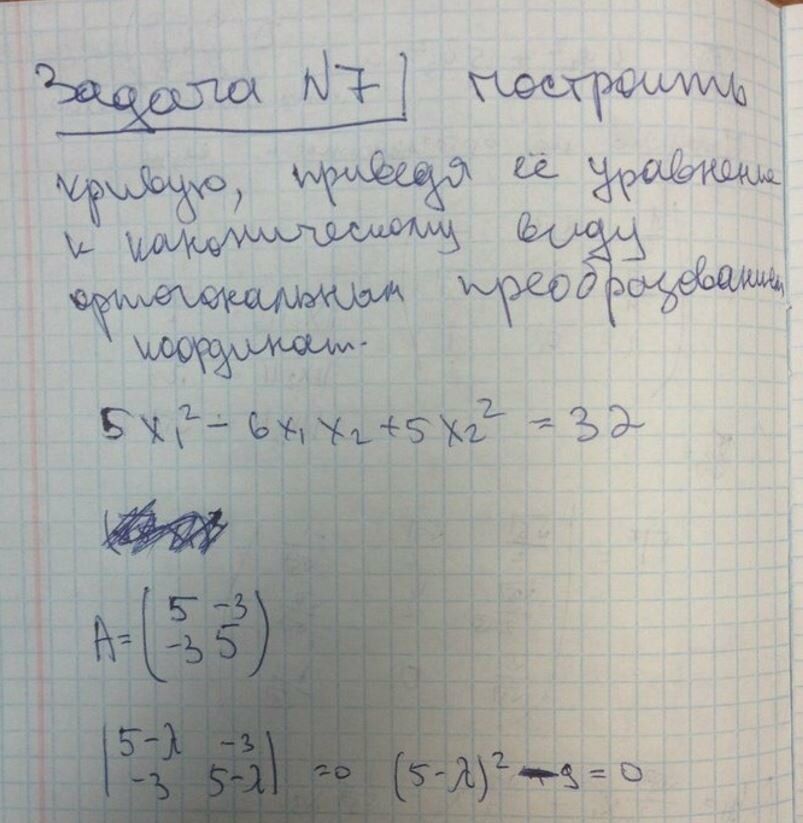 Задача N7 построить
кривую, приведя её уравнение
к каноническому виду
ортогональным преобразованием
координат.
5x₁² - 6x₁x₂ + 5x₂² = 32
A = (5 -3
-3 5)
|5-λ -3
-3 5-λ| =0 (5-λ)² - 9 = 0